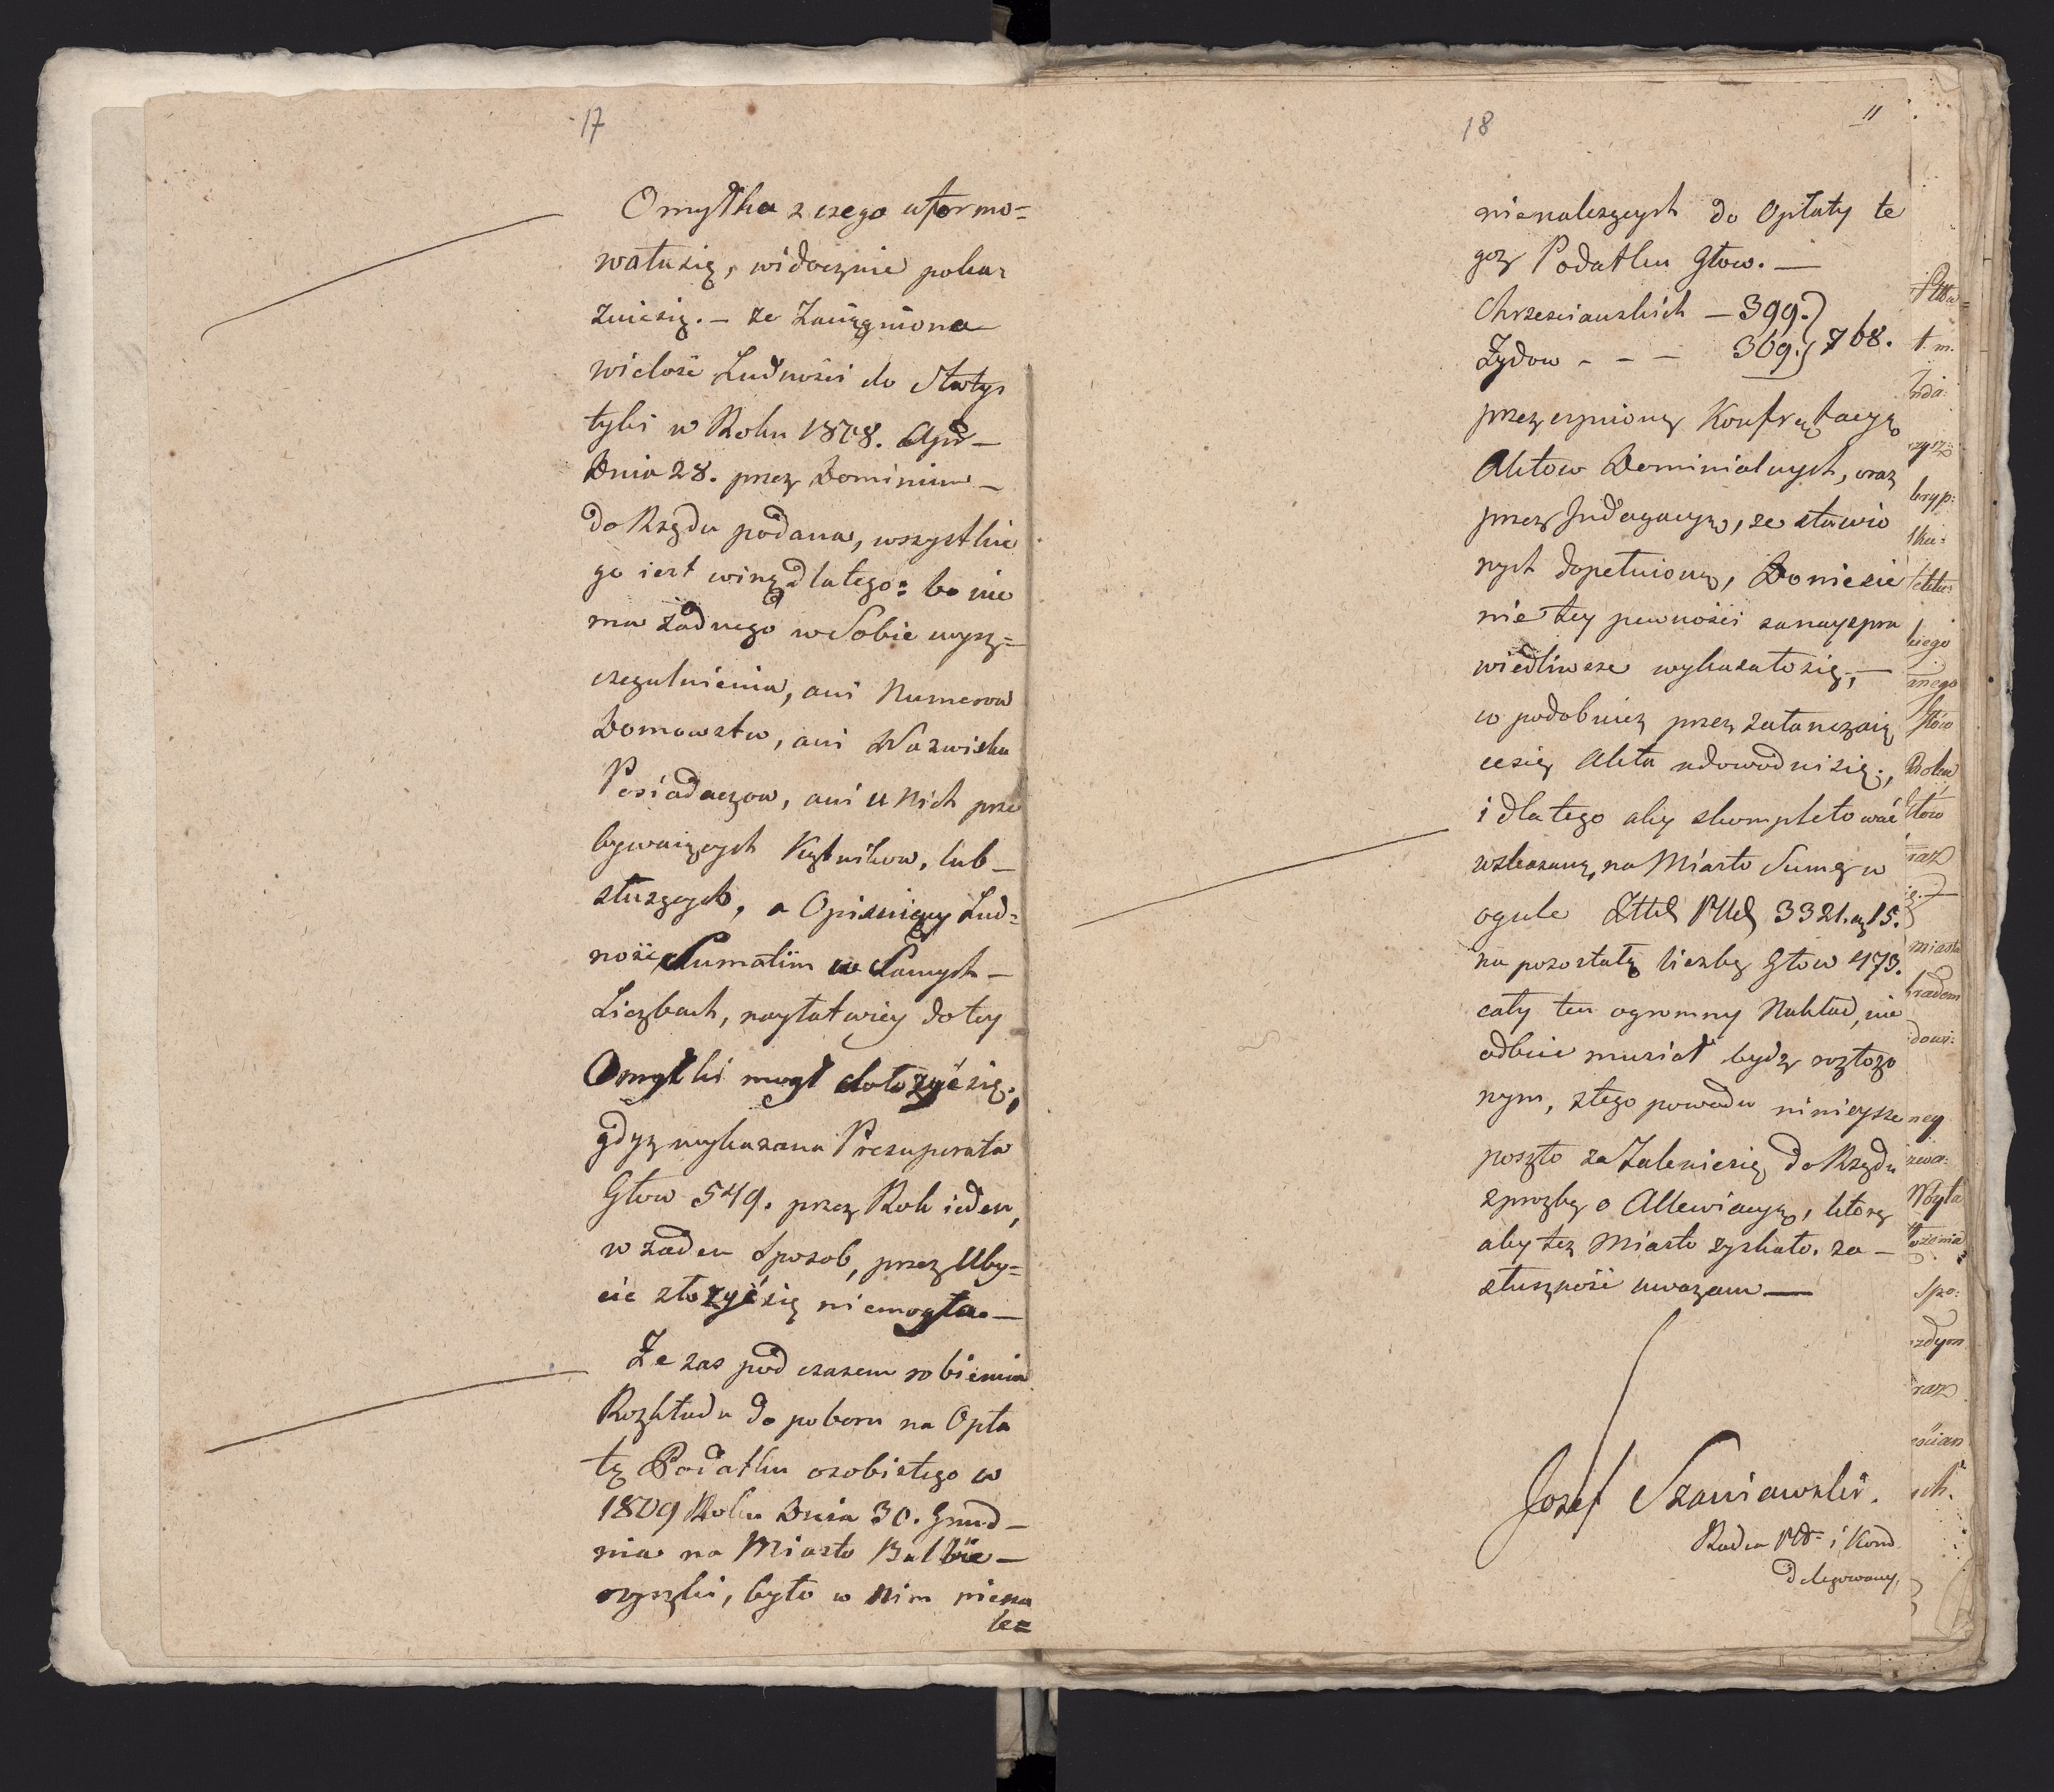 17
Omyłka z czego uformo=
wała się, widocznie poka=
znie się. – ze Zaciągniona
wielość Ludności do Statys
tyki w Roku 1808. Apr –
Dnia 28. przez Dominium –
do Rządu podana, wszystkie
go iest winą dlatego: bo nie
ma żadnego w Sobie wysz=
czegulnienia, ani Numerow
Domowstw, ani Nazwiska
Posiadaczow, ani u Nich prze
bywaiących Kątnikow, lub –
służących, a Opisuiący Lud=
ność Sumatim w Samych –
Liczbach, nayłatwiey do tey
Omyłki mogł dołożyć się;
gdyż wykazana Presuperata
Głow 549. przez Rok ieden,
w żaden Sposob, przez Uby=
cie złożyć się niemogła. –
Ze zas pod czasem robienia
Rozkładu do poboru na Opła
tę Podatku osobistego w
1809 Roku Dnia 30. Grud –
nia na Miasto Balbie –
rzyszki, było w Nim niena
le=
18
11
nienależących do Opłaty te
goz Podatku Głow. –
Chrzescianskich – 399.
Zydow - - - 369. } 768.
przez czynioną Konfrątacyą
Aktow Dominialnych, oraz
przez Indagacyą, ze stawio
nych dopełnioną, Doniesie
nie tey pewności zanayspra
wiedliwsze wykazało się; –
co podobnież przez załanczaią
ce się Akta udowodni się;
i dlatego aby skompletować
wskazaną na Miasto Sumę w
ogule 3321. 15.
na pozostałą liczbę Głow 473.
cały ten ogromny Nakład, nie
odbicie musiał bydz rozłozo
nym, z tego powodu ninieysze
poszło za Zalenie się do Rządu
z prozbą o Allewiacyą, ktorą
aby tez Miasto zyskało. za –
słuszność uwazam –
Jozef Szaniawski.
Radca i Kom
delegowany.